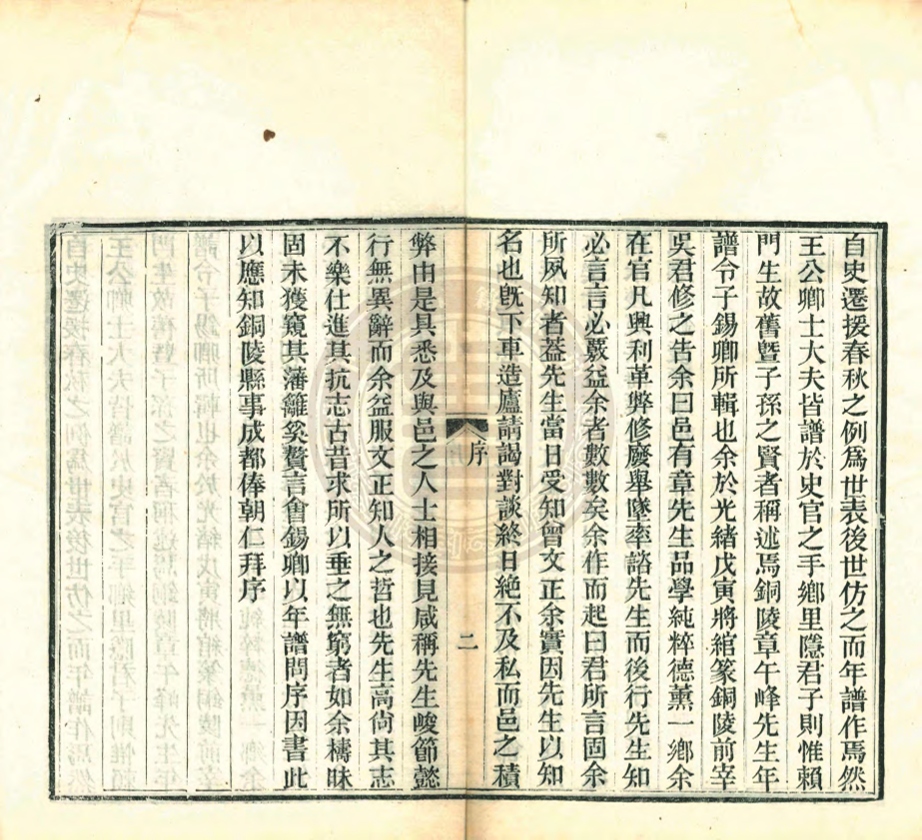 自史遷援春秋之例爲世表後世仿之而年譜作焉然
王公卿士大夫皆譜於史官之手鄉里隱君子則惟賴
門生故舊曁子孫之賢者稱述焉銅陵章午峰先生年
譜令子錫卿所輯也余於光緒戊寅將綰篆銅陵前宰
吳君修之告余曰邑有章先生品學純粹德薰一鄉余
在官凡興利革弊修廢舉墜率諮先生而後行先生知
必言言必覈益余者數數矣余作而起曰君所言固余
所夙知者葢先生當日受知曾文正余實因先生以知
名也旣下車造廬請謁對談終日絶不及私而邑之積
序
二
弊由是具悉及與邑之人士相接見咸稱先生峻節懿
行無異辭而余益服文正知人之哲也先生高尙其志
不樂仕進其抗志古昔求所以垂之無窮者如余檮昧
固未獲窺其藩籬奚贅言會錫卿以年譜問序因書此
以應知銅陵縣事成都俸朝仁拜序